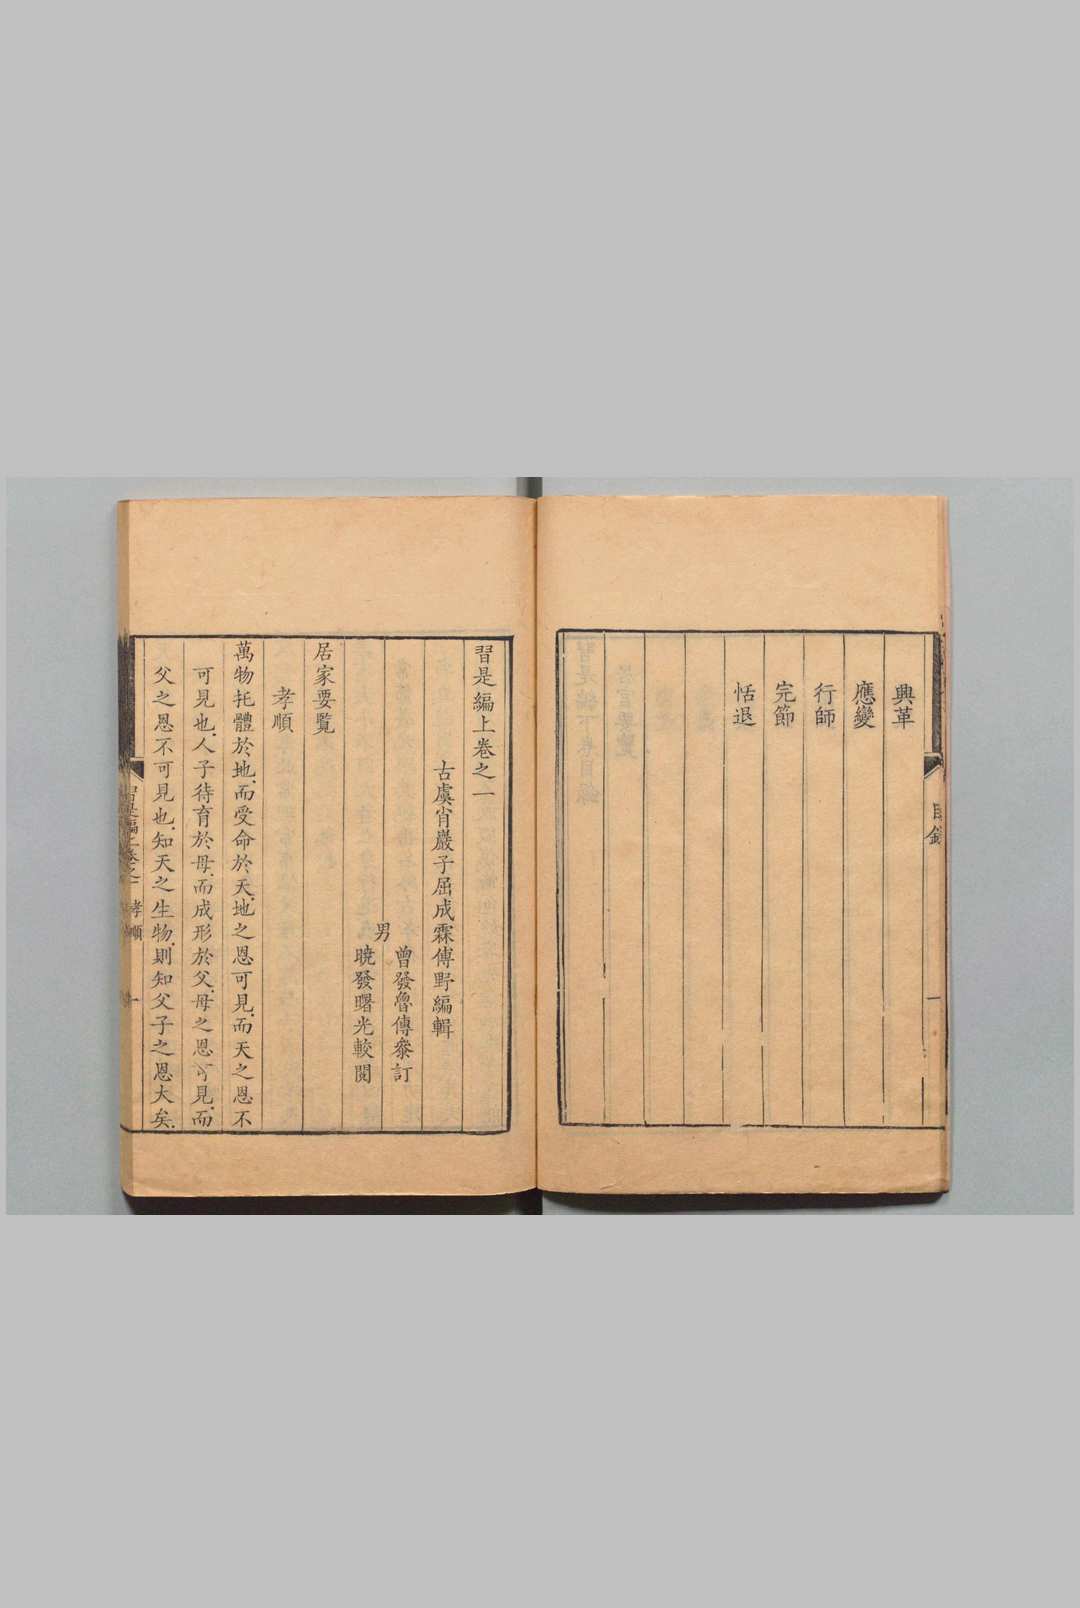 興革
應變
行師
完節
恬退
目錄
一
習是編上卷之一
古虞省巖子屈成霖傅野編輯
男
曾發魯傳叅訂
曉發曙光較閱
居家要覽
孝順
萬物托體於地而受命於天地之恩可見而天之恩不
可見也人子待育於母而成形於父母之恩可見而
父之恩不可見也知天之生物則知父子之恩大矣
習是編上卷之一
孝順
一